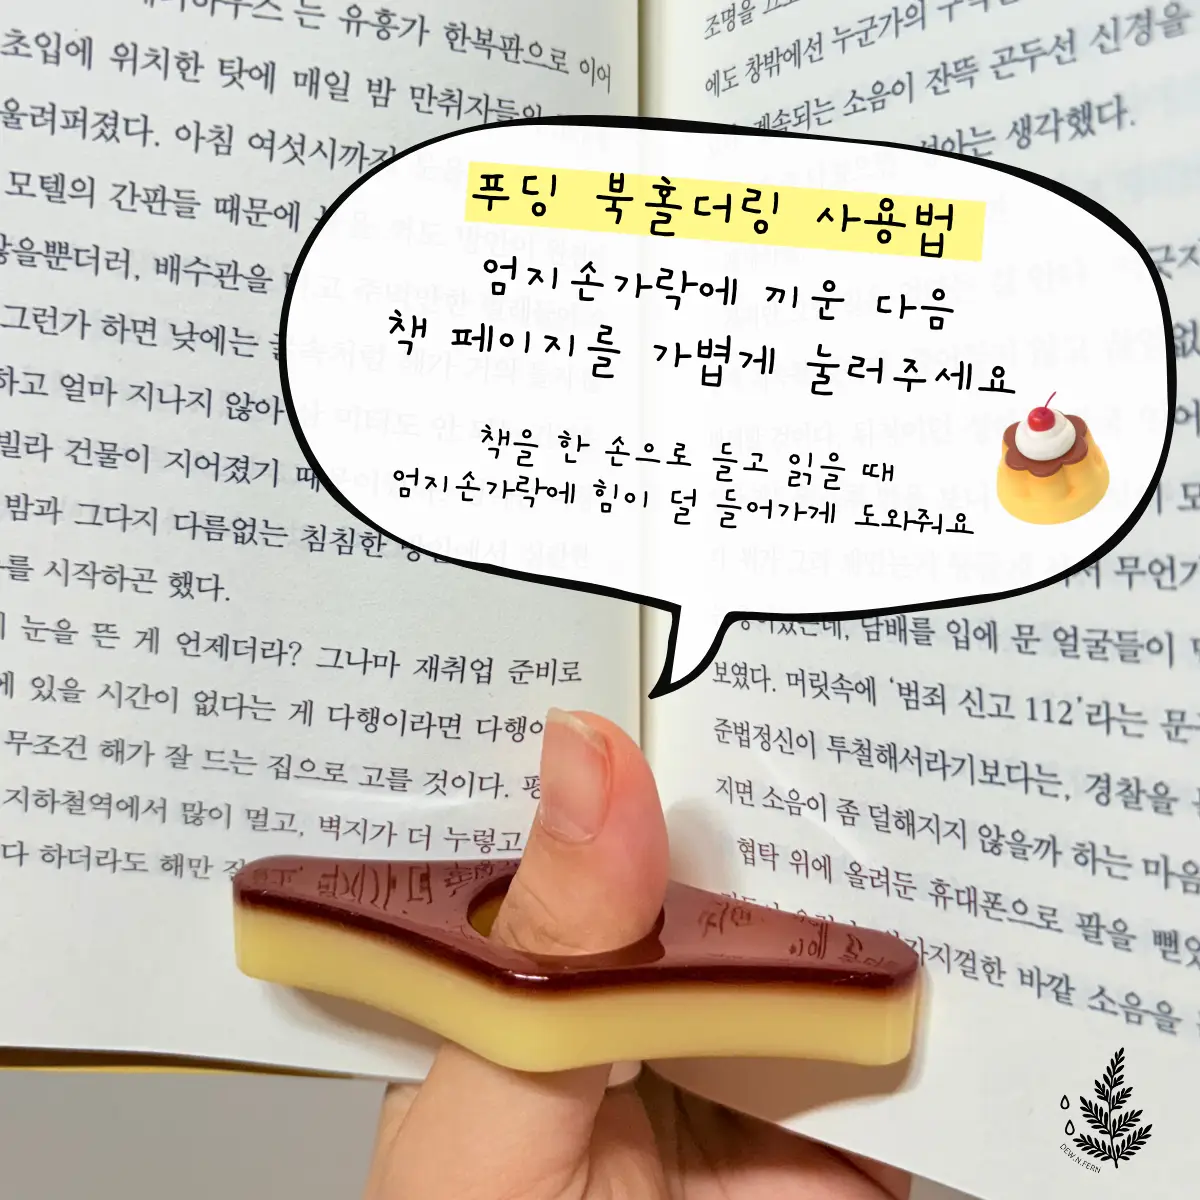 는 유흥가 한복판으로 이어
초입에 위치한 탓에 매일 밤 만취자들의
울려퍼졌다. 아침 여섯시까지
모텔의 간판들 때문에
않을뿐더러, 배수관을
그런가 하면 낮에는
하고 얼마 지나지 않아
빌라 건물이 지어졌기 때
밤과 그다지 다름없는 침침한
를 시작하곤 했다.
눈을 뜬 게 언제더라? 그나마 재취업 준비로
에 있을 시간이 없다는 게 다행이라면 다행이
무조건 해가 잘 드는 집으로 고를 것이다.
지하철역에서 많이 멀고, 벽지가 더 누렇고
다 하더라도 해만
조명을
에도 창밖에선 누군가의
계속되는 소음이 잔뜩 곤두선 신경을
생각했다.
푸딩 북홀더링 사용법
엄지손가락에 끼운 다음
책 페이지를 가볍게 눌러주세요
책을 한 손으로 들고 읽을 때
엄지손가락에 힘이 덜 들어가게 도와줘요
무언가
담배를 입에 문 얼굴들이
보였다. 머릿속에 ‘범죄 신고 112’라는
준법정신이 투철해서라기보다는, 경찰을
지면 소음이 좀 덜해지지 않을까 하는 마음
협탁 위에 올려둔 휴대폰으로 팔을 뻗었
왁자지껄한 바깥 소음을
DEW.N.FERN